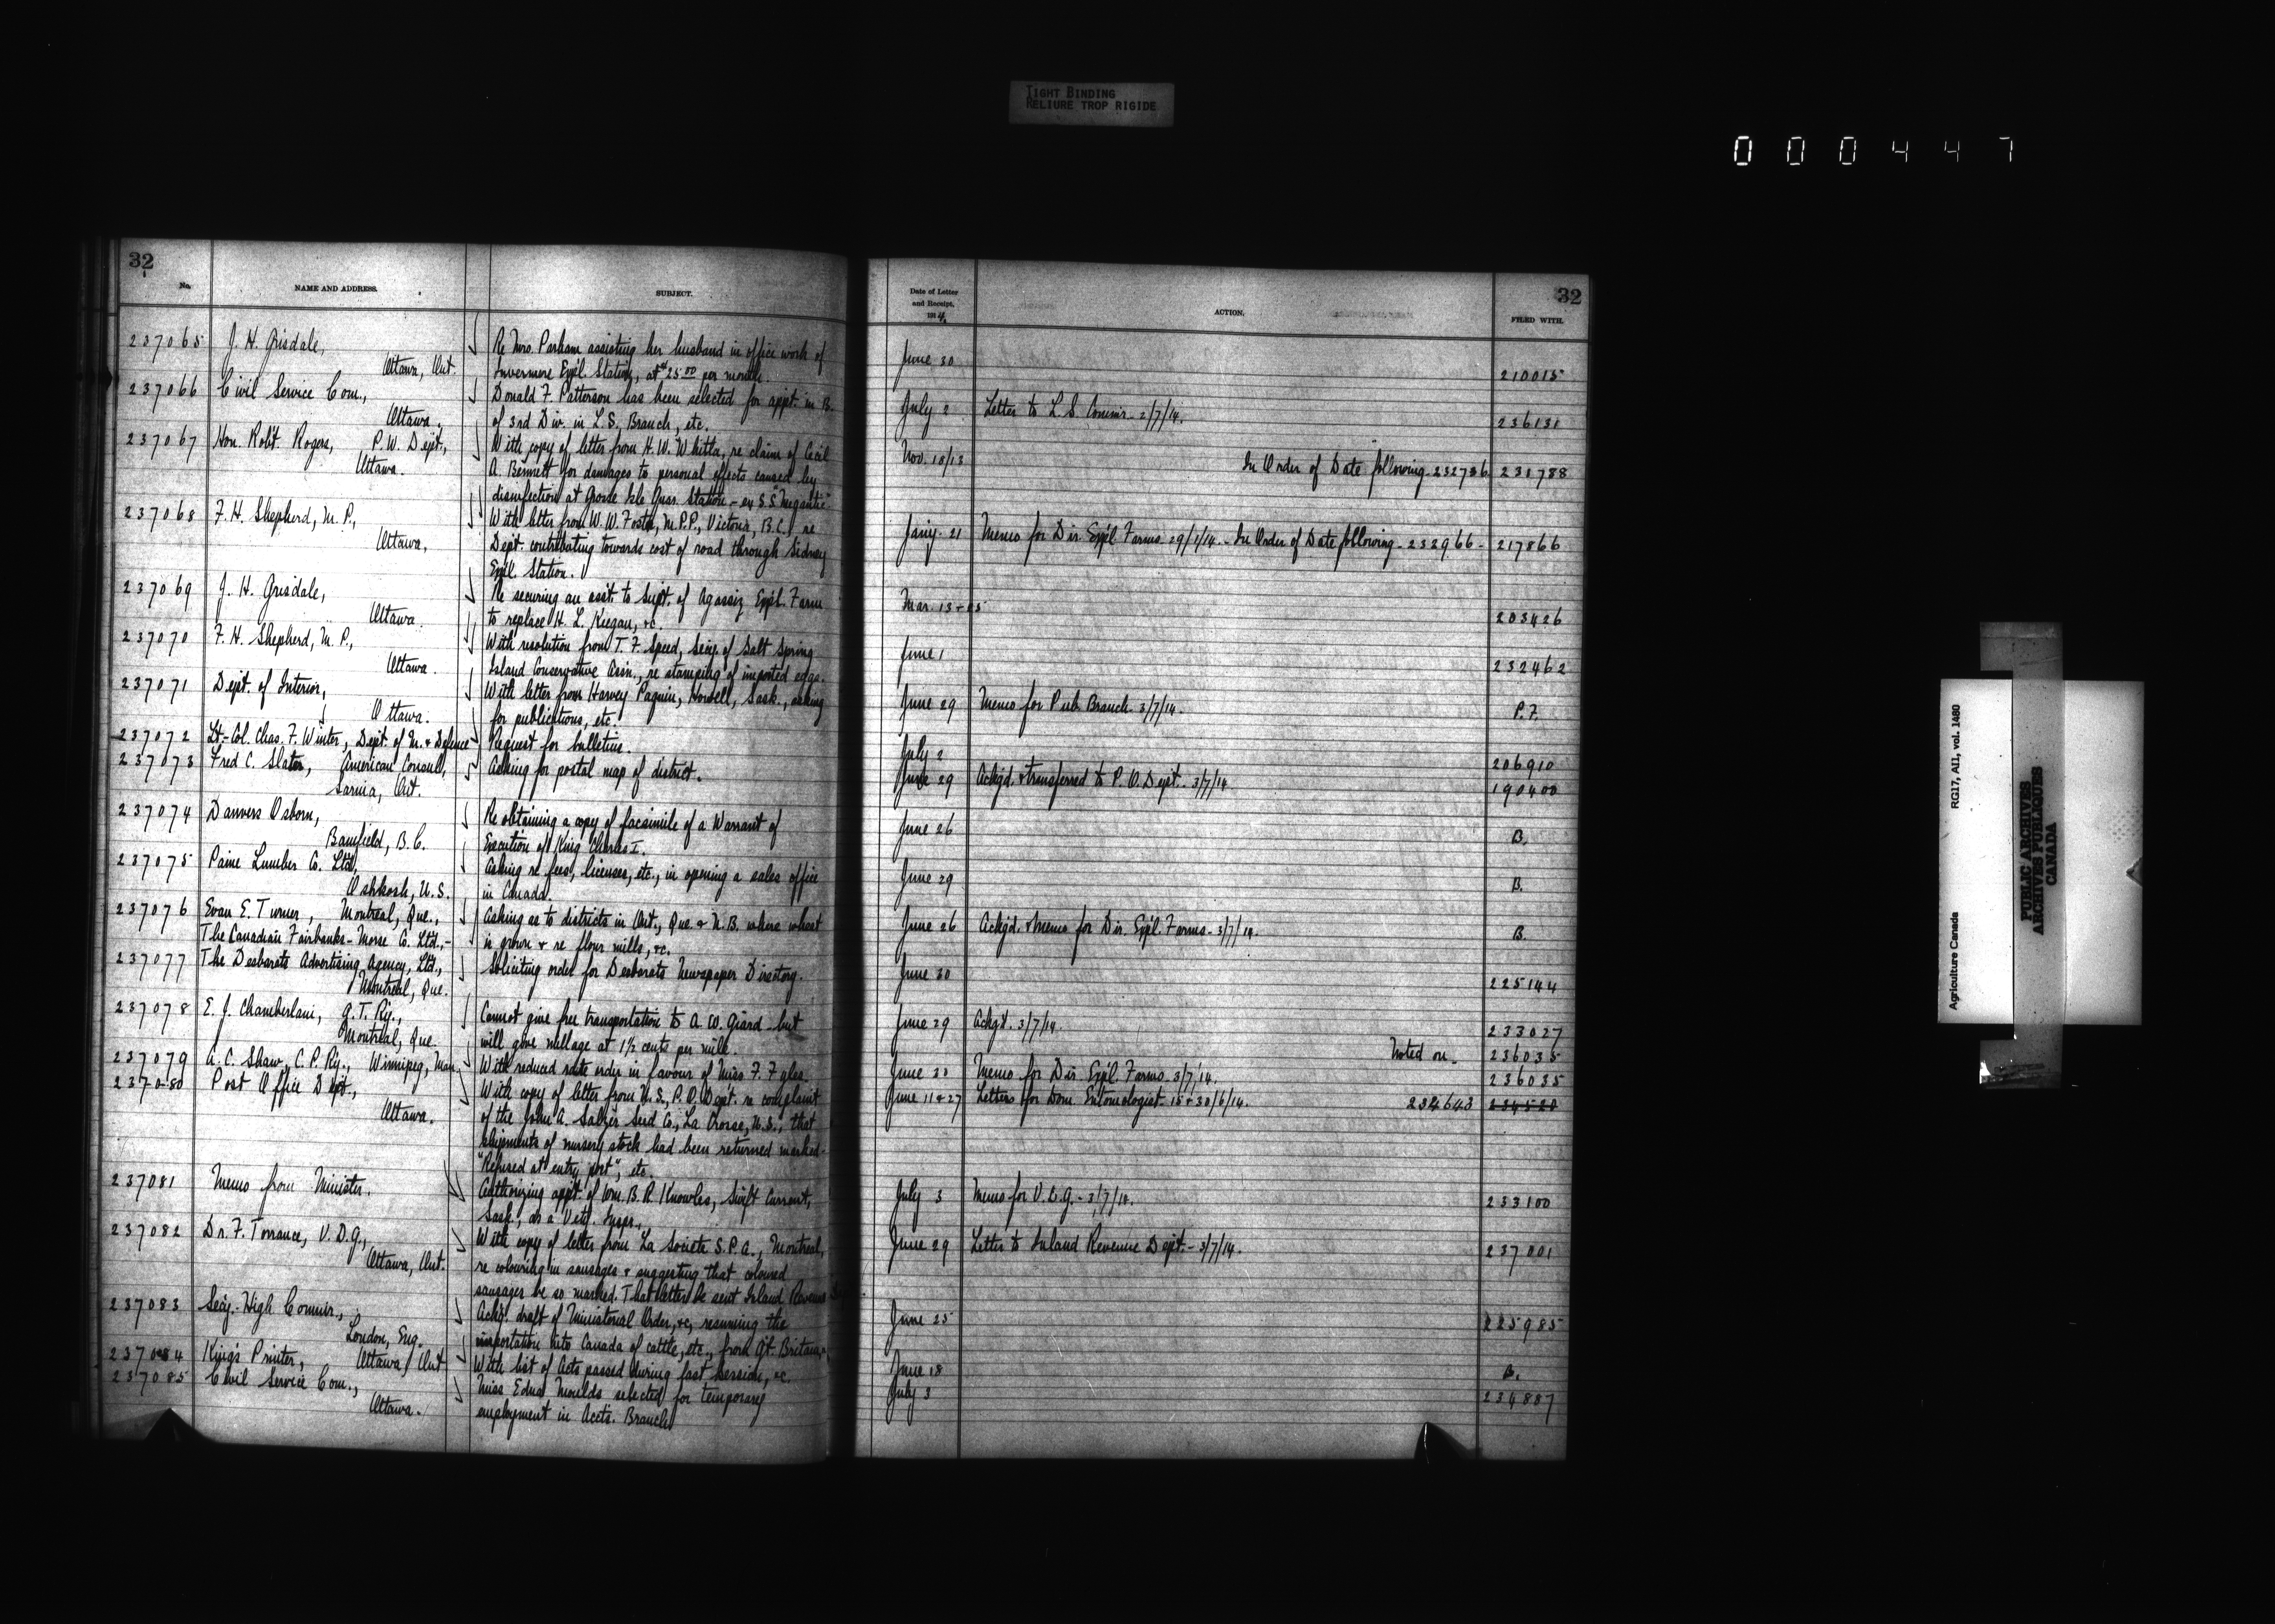 TIGHT BINDING
RELIURE TROP RIGIDE
000447
32
No.
NAME AND ADDRESS.
SUBJECT.
237065 J. H. Grisdale, Re Mrs. Parham assisting her husband in office work of
Ottawa, Ont. Invermere Exp'l. Station, at $25.00 per month.
237066 Civil Service Com., Donald F. Patterson has been selected for appt. in B.
Ottawa. of 3rd Div. in L.S. Branch, etc.
237067 Hon. Robt. Rogers, P.W. Dept., With copy of letter from H.W. Whitla, re claim of Cecil
Ottawa. A. Bennett for damages to personal effects caused by
disinfection at Grosse Isle Quar. Station - ex S.S. "Megantic"
237068 F. H. Shepherd, M.P., With letter from W.W. Foster, M.P.P., Victoria, B.C., re
Ottawa, Dept. contributing towards cost of road through Sidney
Exp'l. Station.
237069 J. H. Grisdale, Re securing an asst. to Supt. of Agassiz Exp'l. Farm
Ottawa. to replace H. L. Keegan, &c.
237070 F. H. Shepherd, M.P., With resolution from T. F. Speed, Secy. of Salt Spring
Ottawa. Island Conservative Assn., re stamping of imported eggs.
237071 Dept. of Interior, With letter from Harvey Paquin, Howell, Sask., asking
Ottawa. for publications, etc.
237072 Lt.-Col. Chas. F. Winter, Dept. of M. & Defence Request for bulletins.
237073 Fred C. Slater, American Consul, Asking for postal map of district.
Sarnia, Ont.
237074 Danvers Osborn, Re obtaining a copy of facsimile of a Warrant of
Bamfield, B.C. Execution of King Charles I.
237075 Paine Lumber Co. Ltd., Asking re fees, licenses, etc., in opening a sales office
Oshkosh, U.S. in Canada.
237076 Evan E. Turner, Montreal, Que., Asking as to districts in Ont., Que. & N.B. where wheat
The Canadian Fairbanks-Morse Co. Ltd., - is grown & re flour mills, &c.
237077 The Desbarats Advertising Agency, Ltd., Soliciting order for Desbarats Newspaper Directory.
Montreal, Que.
237078 E. J. Chamberlain, G.T. Ry., Cannot give free transportation to A. W. Giard but
Montreal, Que. will give mileage at 1½ cents per mile.
237079 A. C. Shaw, C.P. Ry., Winnipeg, Man., With reduced rate order in favour of Miss F.
237080 Post Office Dept., With copy of letter from U.S., P.O. Dept. re complaint
Ottawa. of the John A. Salzer Seed Co., La Crosse, U.S., that
shipments of nursery stock had been returned marked -
"Refused at entry port", etc.
237081 Memo from Minister. Authorizing appt. of Wm. B. R. Knowles, Swift Current,
Sask., as a Vety. Inspr.
237082 Dr. F. Torrance, V.D.G., With copy of letter from La Societe S.P.A., Montreal,
Ottawa, Ont. re colouring in sausages & suggesting that coloured
sausages be so marked. That letter be sent Inland Revenue
237083 Secy. High Commr., Ackg. draft of Ministerial Order, &c, resuming the
London, Eng. importation into Canada of cattle, etc., from Gt. Britain,
237084 King's Printer, Ottawa, Ont With list of Acts passed during last session, &c.
237085 Civil Service Com., Miss Edna Moulds selected for temporary
Ottawa. employment in Acct's. Branch
Date of Letter
and Receipt.
1914.
ACTION.
32
FILED WITH.
June 30 210015
July 2 Letter to L.S. Commr. 2/7/14. 236131
Nov. 18/13 In Order of Date following - 232736 231788
Jany. 21 Memo for Dir. Exp'l. Farms. 29/1/14. - In Order of Date following - 232966 - 217866
Mar. 13 + 25 203426
June 1 232462
June 29 Memo for Pub. Branch. 3/7/14. P.F.
July 2 206910
June 29 Ackgd. & transferred to P.O. Dept. 3/7/14 190400
June 26 B.
June 29 B.
June 26 Ackgd. & memo for Dir. Exp'l. Farms - 3/7/14. B.
June 30 225144
June 29 Ackgd. 3/7/14. 233027
Noted on - 236035
June 30 Memo for Dir. Exp'l. Farms - 3/7/14. 236035
June 11 & 27 Letters for Dom. Entomologist - 15 & 30/6/14. 234643 234520
July 3 Memo for V.D.G. - 3/7/14. 233100
June 29 Letter to Inland Revenue Dept. - 3/7/14. 237001
June 25 225985
June 18 B.
July 3 234887
Agriculture Canada
RG17, AII, vol. 1480
PUBLIC ARCHIVES
ARCHIVES PUBLIQUES
CANADA